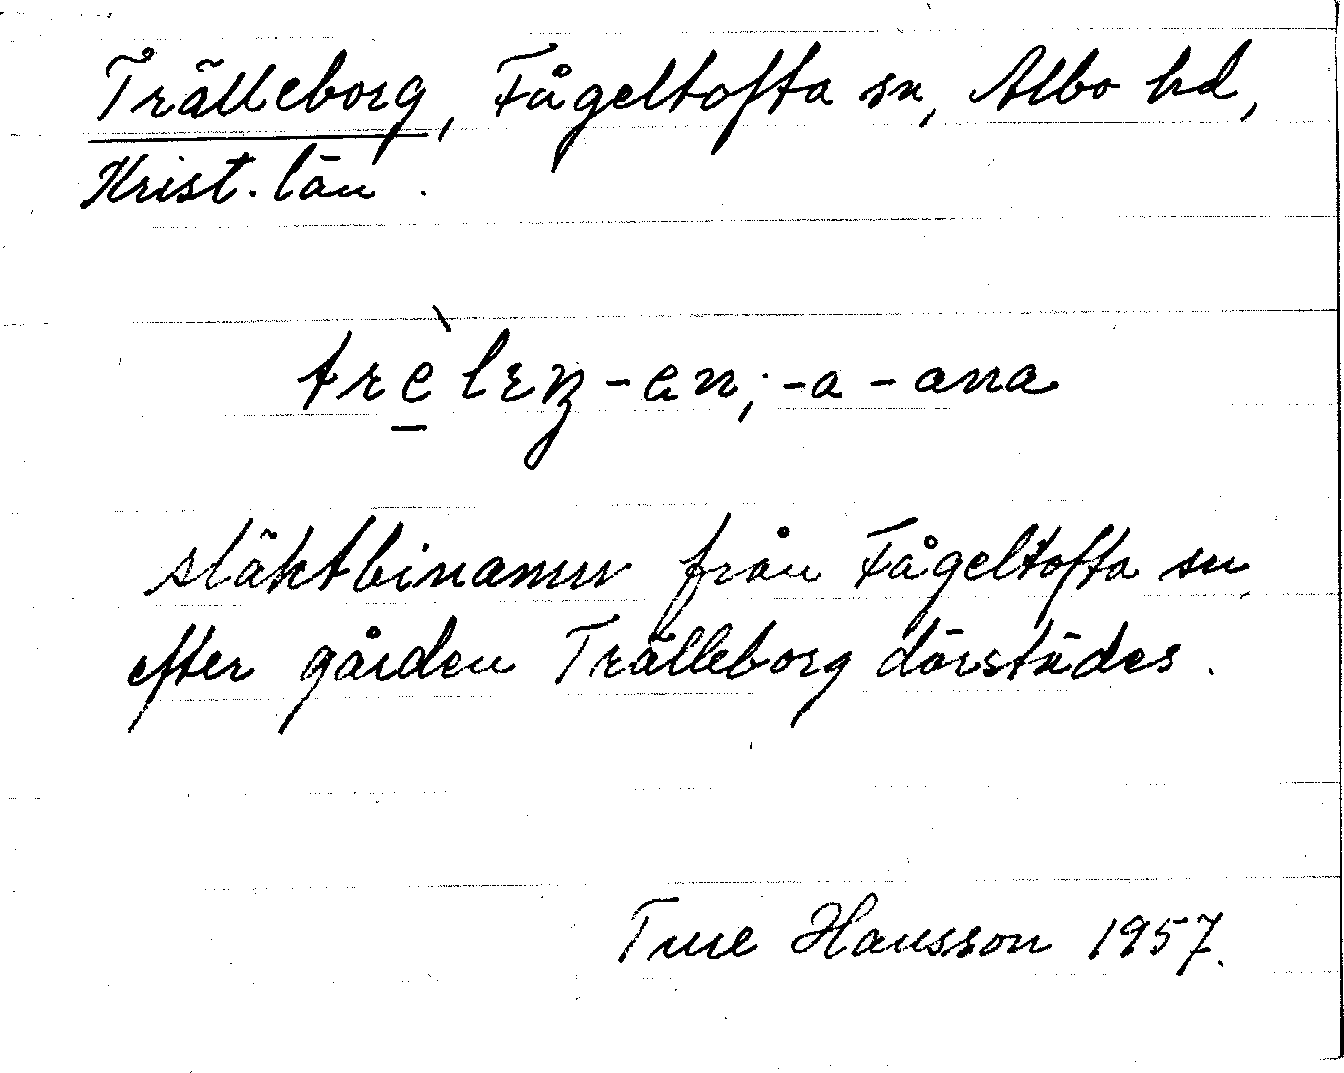 Trälleborg, Fågeltofta sn, Albo hd,
Krist. län.
trèlɛŋ -en; -a -ana
släktbinamn från Fågeltofta sn
efter gården Trälleborg därstädes.
Tue Hansson 1957.